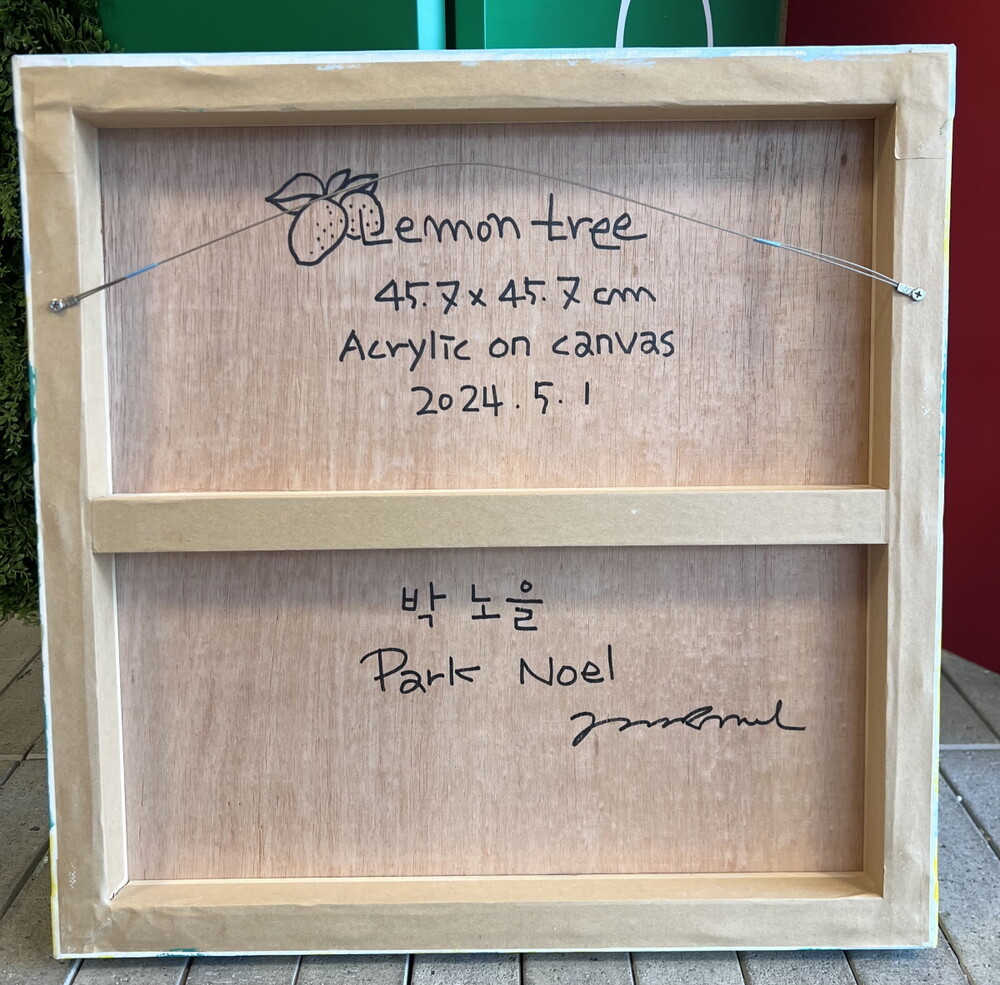 Lemon tree
45.7 x 45.7 cm
Acrylic on canvas
2024.5.1
박 노을
Park Noel